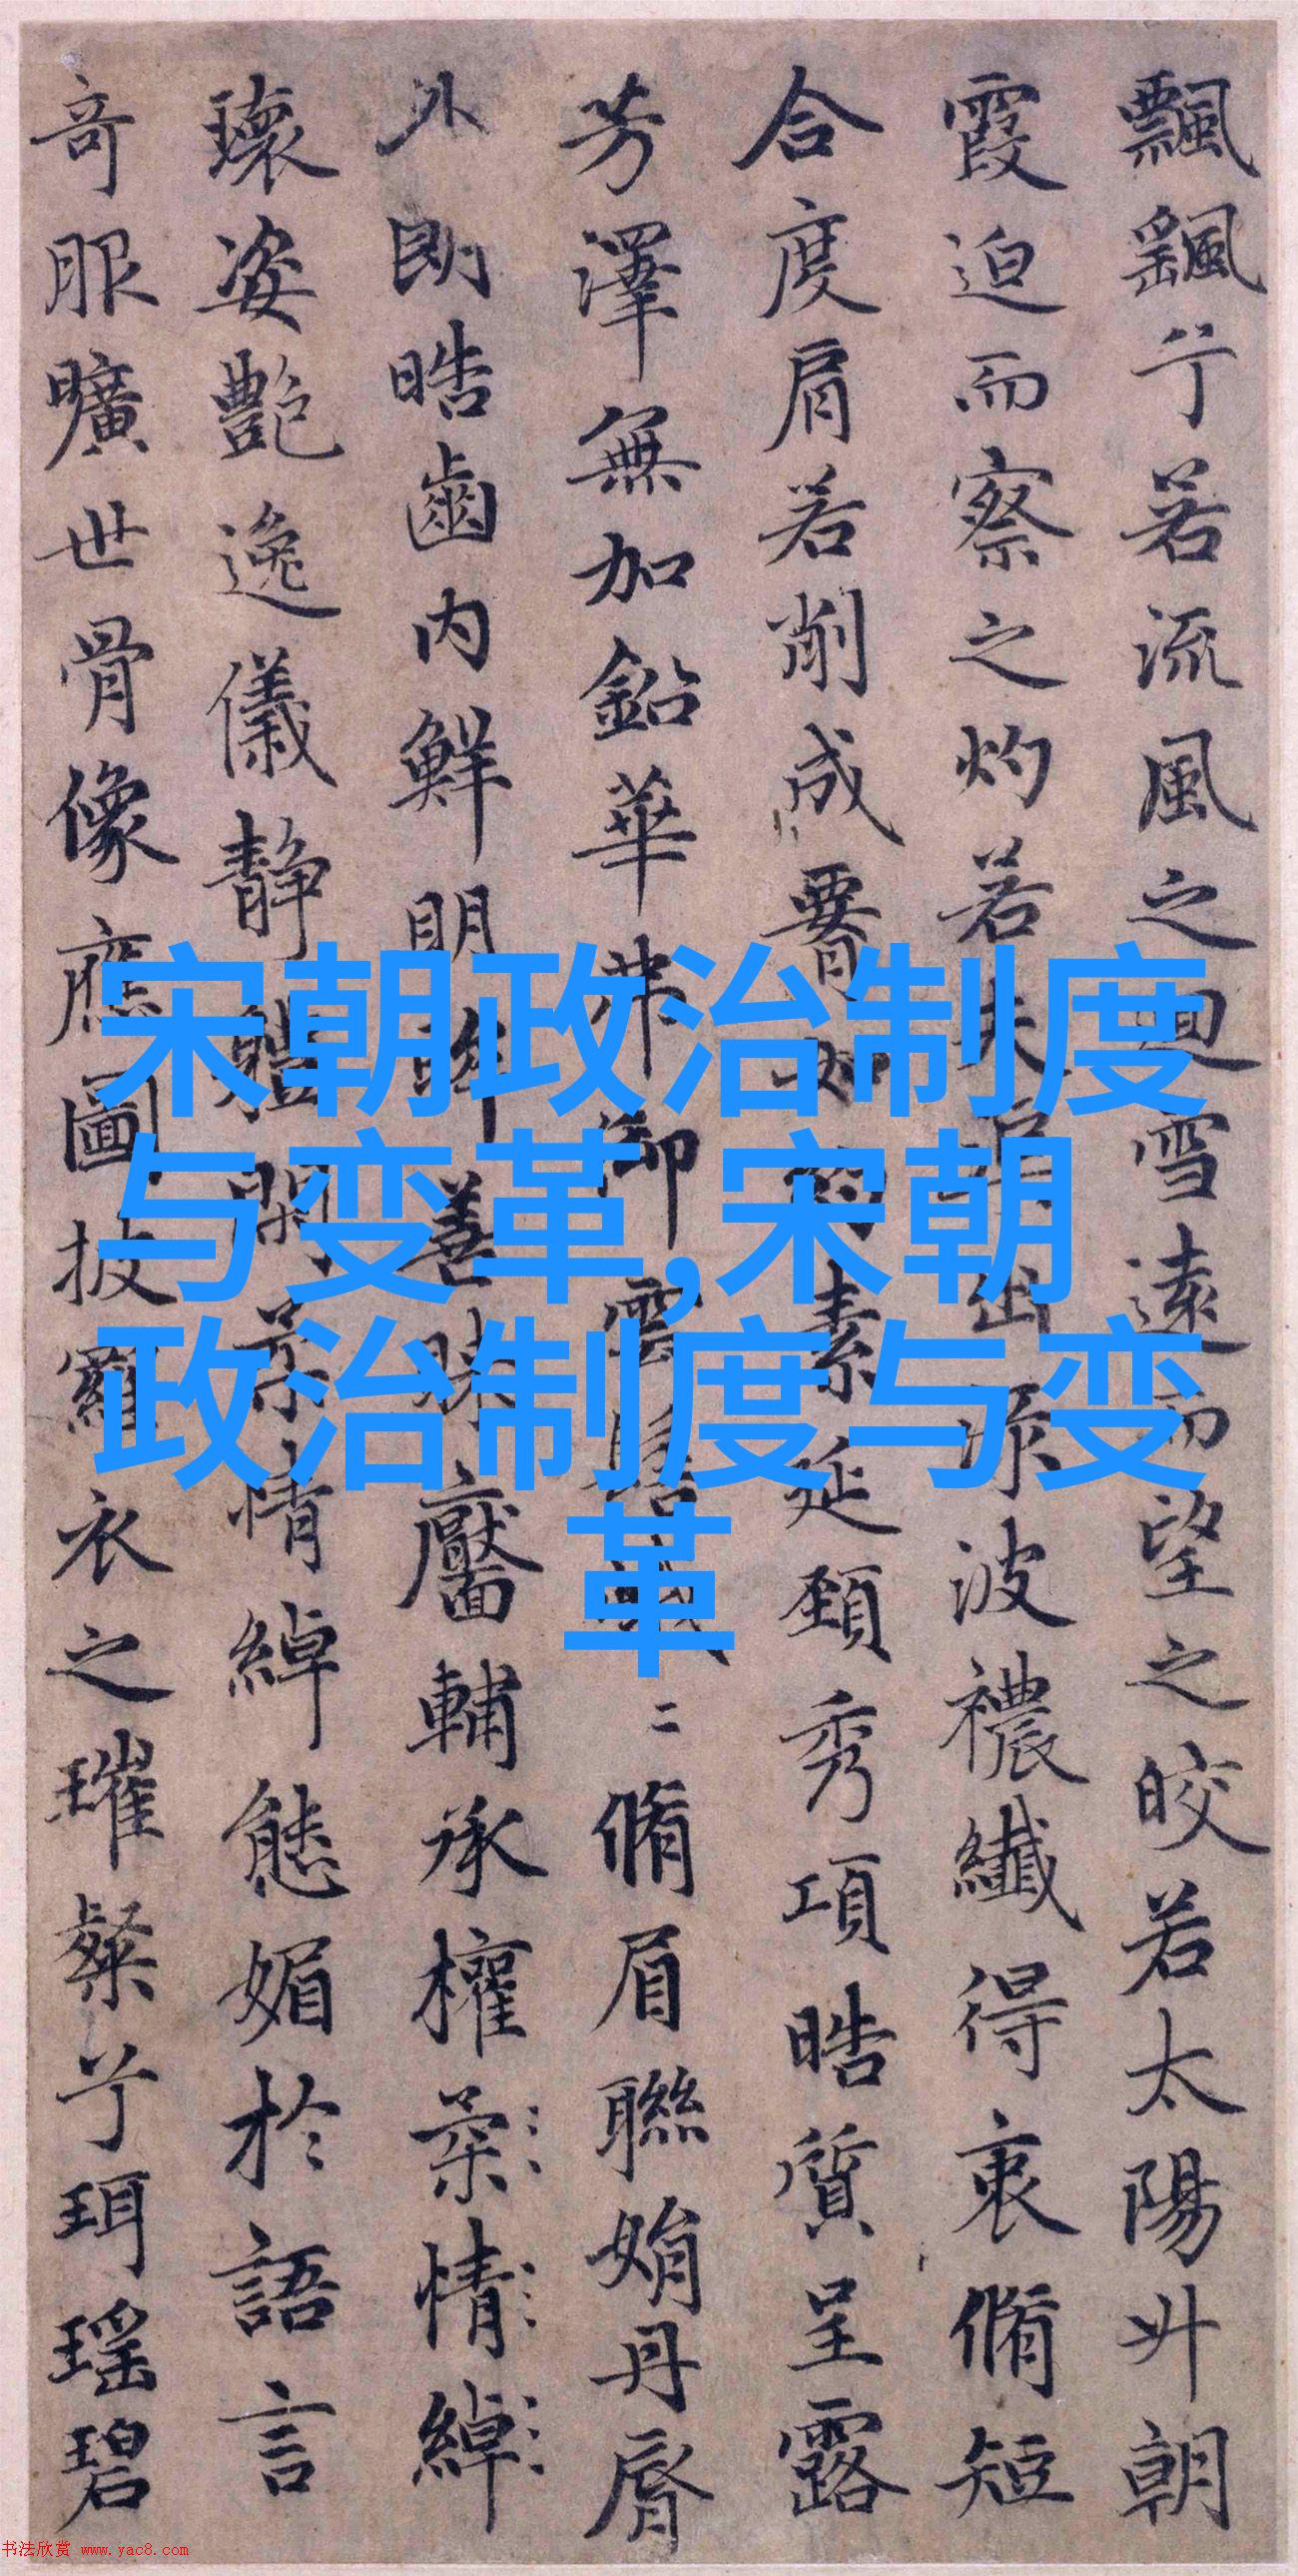 飄飖兮若流風之迴雪遠而望之皎若太陽升朝
霞迫而察之灼若夫蕖出渌波禯纖得衷脩短
合度肩若削成要如約素延頸秀項皓質呈露
芳澤無加鉛華弗御雲髻峩二脩眉聯娟丹脣
外朗皓齒内鮮明眸善睞靨輔承權柔情綽
瓌姿艶逸儀靜體閑柔情綽態媚於語言
奇服曠世骨像應圖披羅衣之璀粲兮珥瑶碧
宋朝政治制度
与变革,宋朝
政治制度与变
革
书法欣赏 www.yac8.com